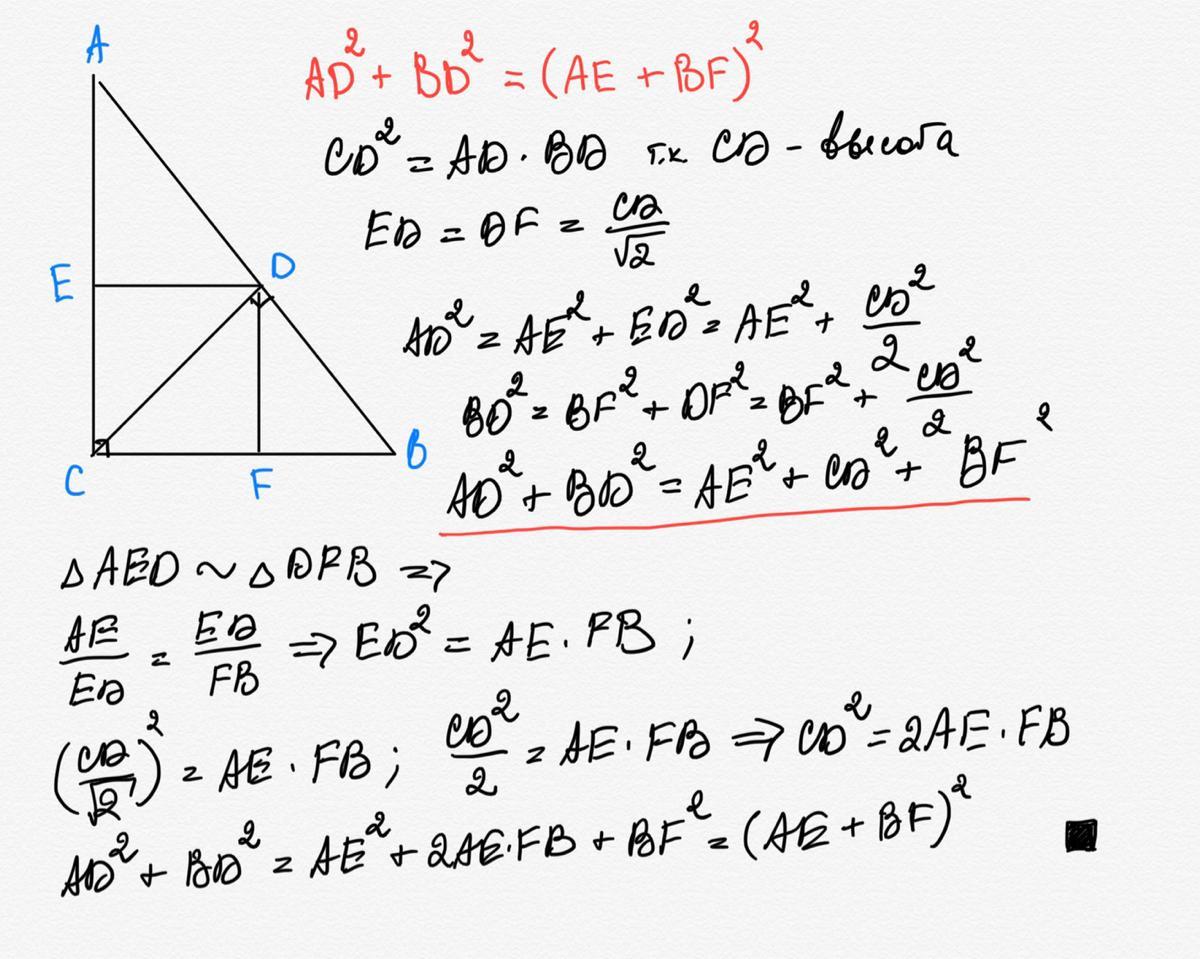 A
E
D
C
F
B
AD² + BD² = (AE + BF)²
CD² = AD · BD т.к CD - высота
ED = DF = CD/√2
AD² = AE² + ED² = AE² + CD²/2
BD² = BF² + DF² = BF² + CD²/2
AD² + BD² = AE² + CD² + BF²
△AED ~ △DFB =>
AE/ED = ED/FB => ED² = AE · FB ;
(CD/√2)² = AE · FB ; CD²/2 = AE · FB => CD² = 2AE · FB
AD² + BD² = AE² + 2AE·FB + BF² = (AE + BF)²